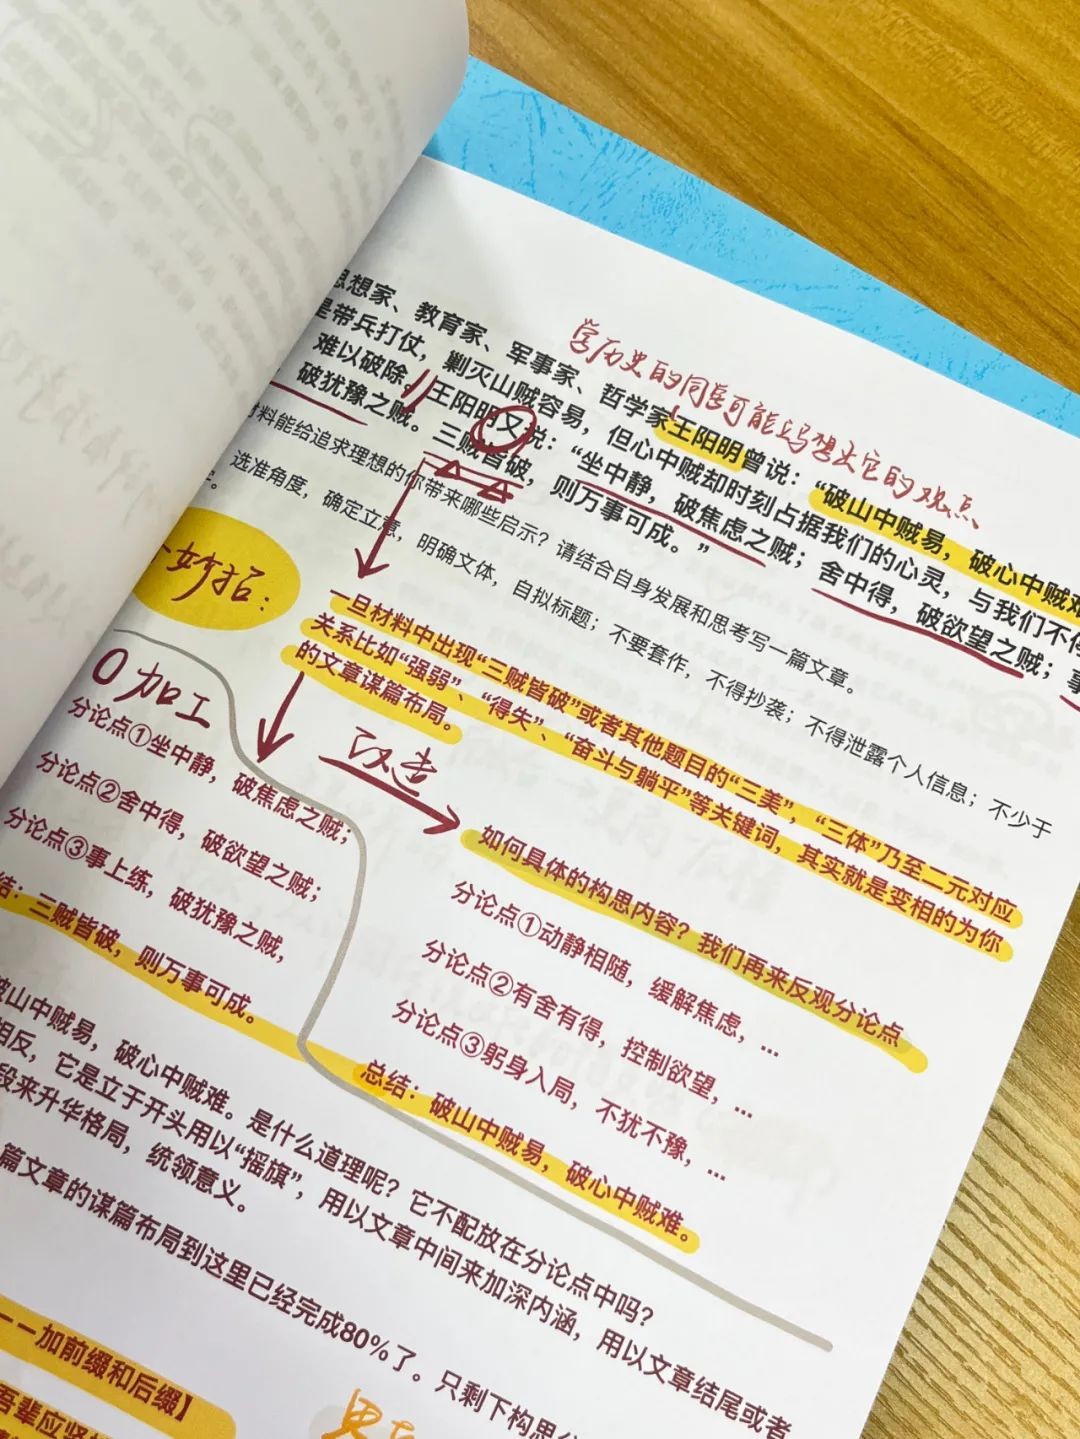 学历史的同学可能想出它的观点
思想家、教育家、军事家、哲学家王阳明曾说：“破山中贼易，破心中贼难
是带兵打仗，剿灭山贼容易，但心中贼却时刻占据我们的心灵，与我们不停
难以破除。王阳明又说：“坐中静，破焦虑之贼；舍中得，破欲望之贼；事
破犹豫之贼。三贼皆破，则万事可成。”
材料能给追求理想的你带来哪些启示？请结合自身发展和思考写一篇文章。
选准角度，确定立意，明确文体，自拟标题；不要套作，不得抄袭；不得泄露个人信息；不少于
妙招：
一旦材料中出现“三贼皆破”或者其他题目的“三美”，“三体”乃至二元对应
关系比如“强弱”、“得失”、“奋斗与躺平”等关键词，其实就是变相的为你
的文章谋篇布局。
0加工
分论点①坐中静，破焦虑之贼；
分论点②舍中得，破欲望之贼；
分论点③事上练，破犹豫之贼，
结：三贼皆破，则万事可成。
改造
如何具体的构思内容？我们再来反观分论点
分论点①动静相随，缓解焦虑，...
分论点②有舍有得，控制欲望，...
分论点③躬身入局，不犹不豫，...
总结：破山中贼易，破心中贼难。
破山中贼易，破心中贼难。是什么道理呢？它不配放在分论点中吗？
相反，它是立于开头用以“摇旗”，用以文章中间来加深内涵，用以文章结尾或者
段来升华格局，统领意义。
篇文章的谋篇布局到这里已经完成80%了。只剩下构思
——加前缀和后缀】
吾辈应坚